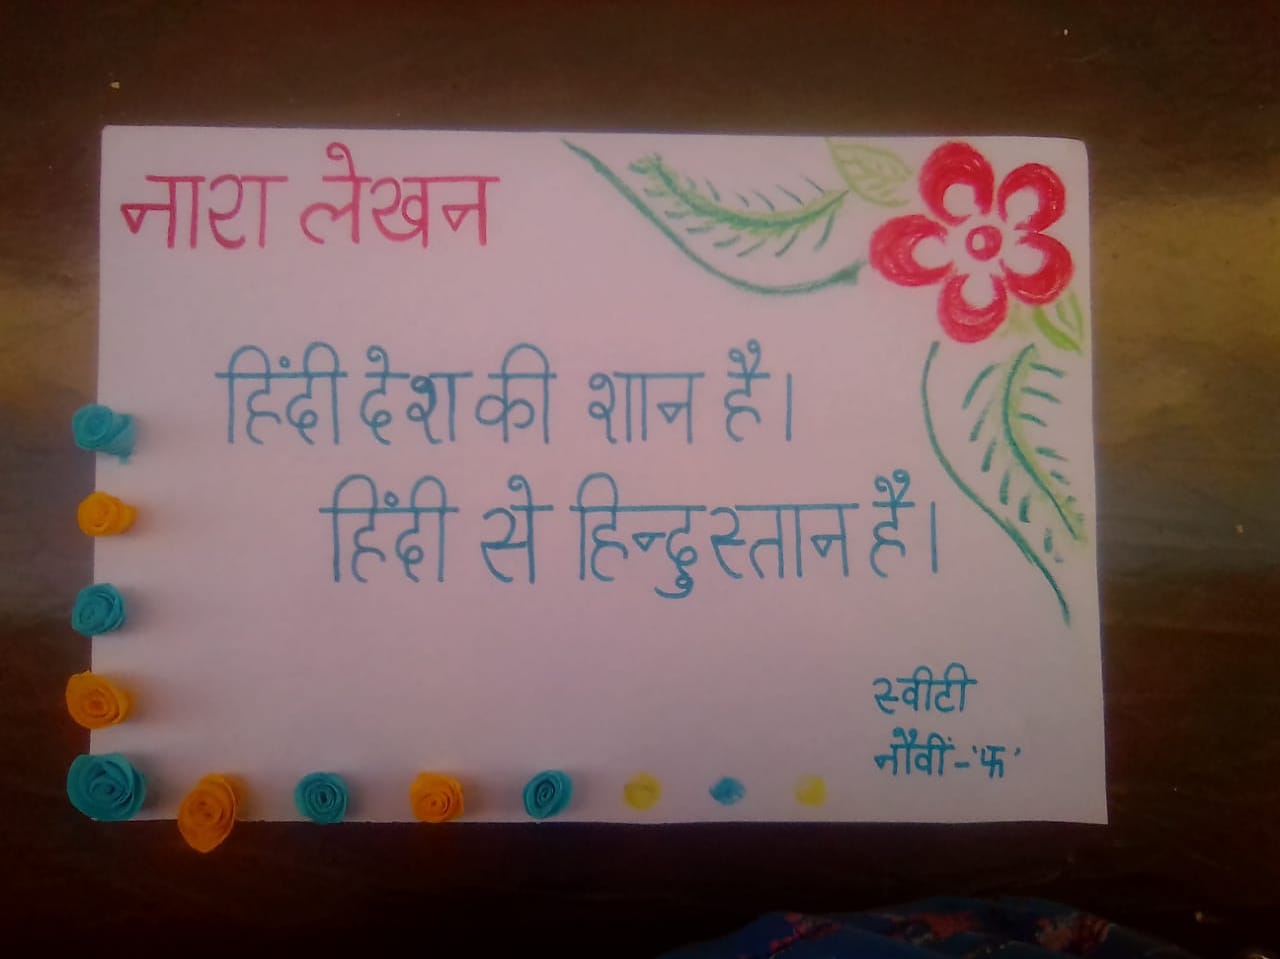 नारा लेखन
हिंदी देश की शान है।
हिंदी से हिन्दुस्तान है।
स्वीटी
नौवीं-'फ'